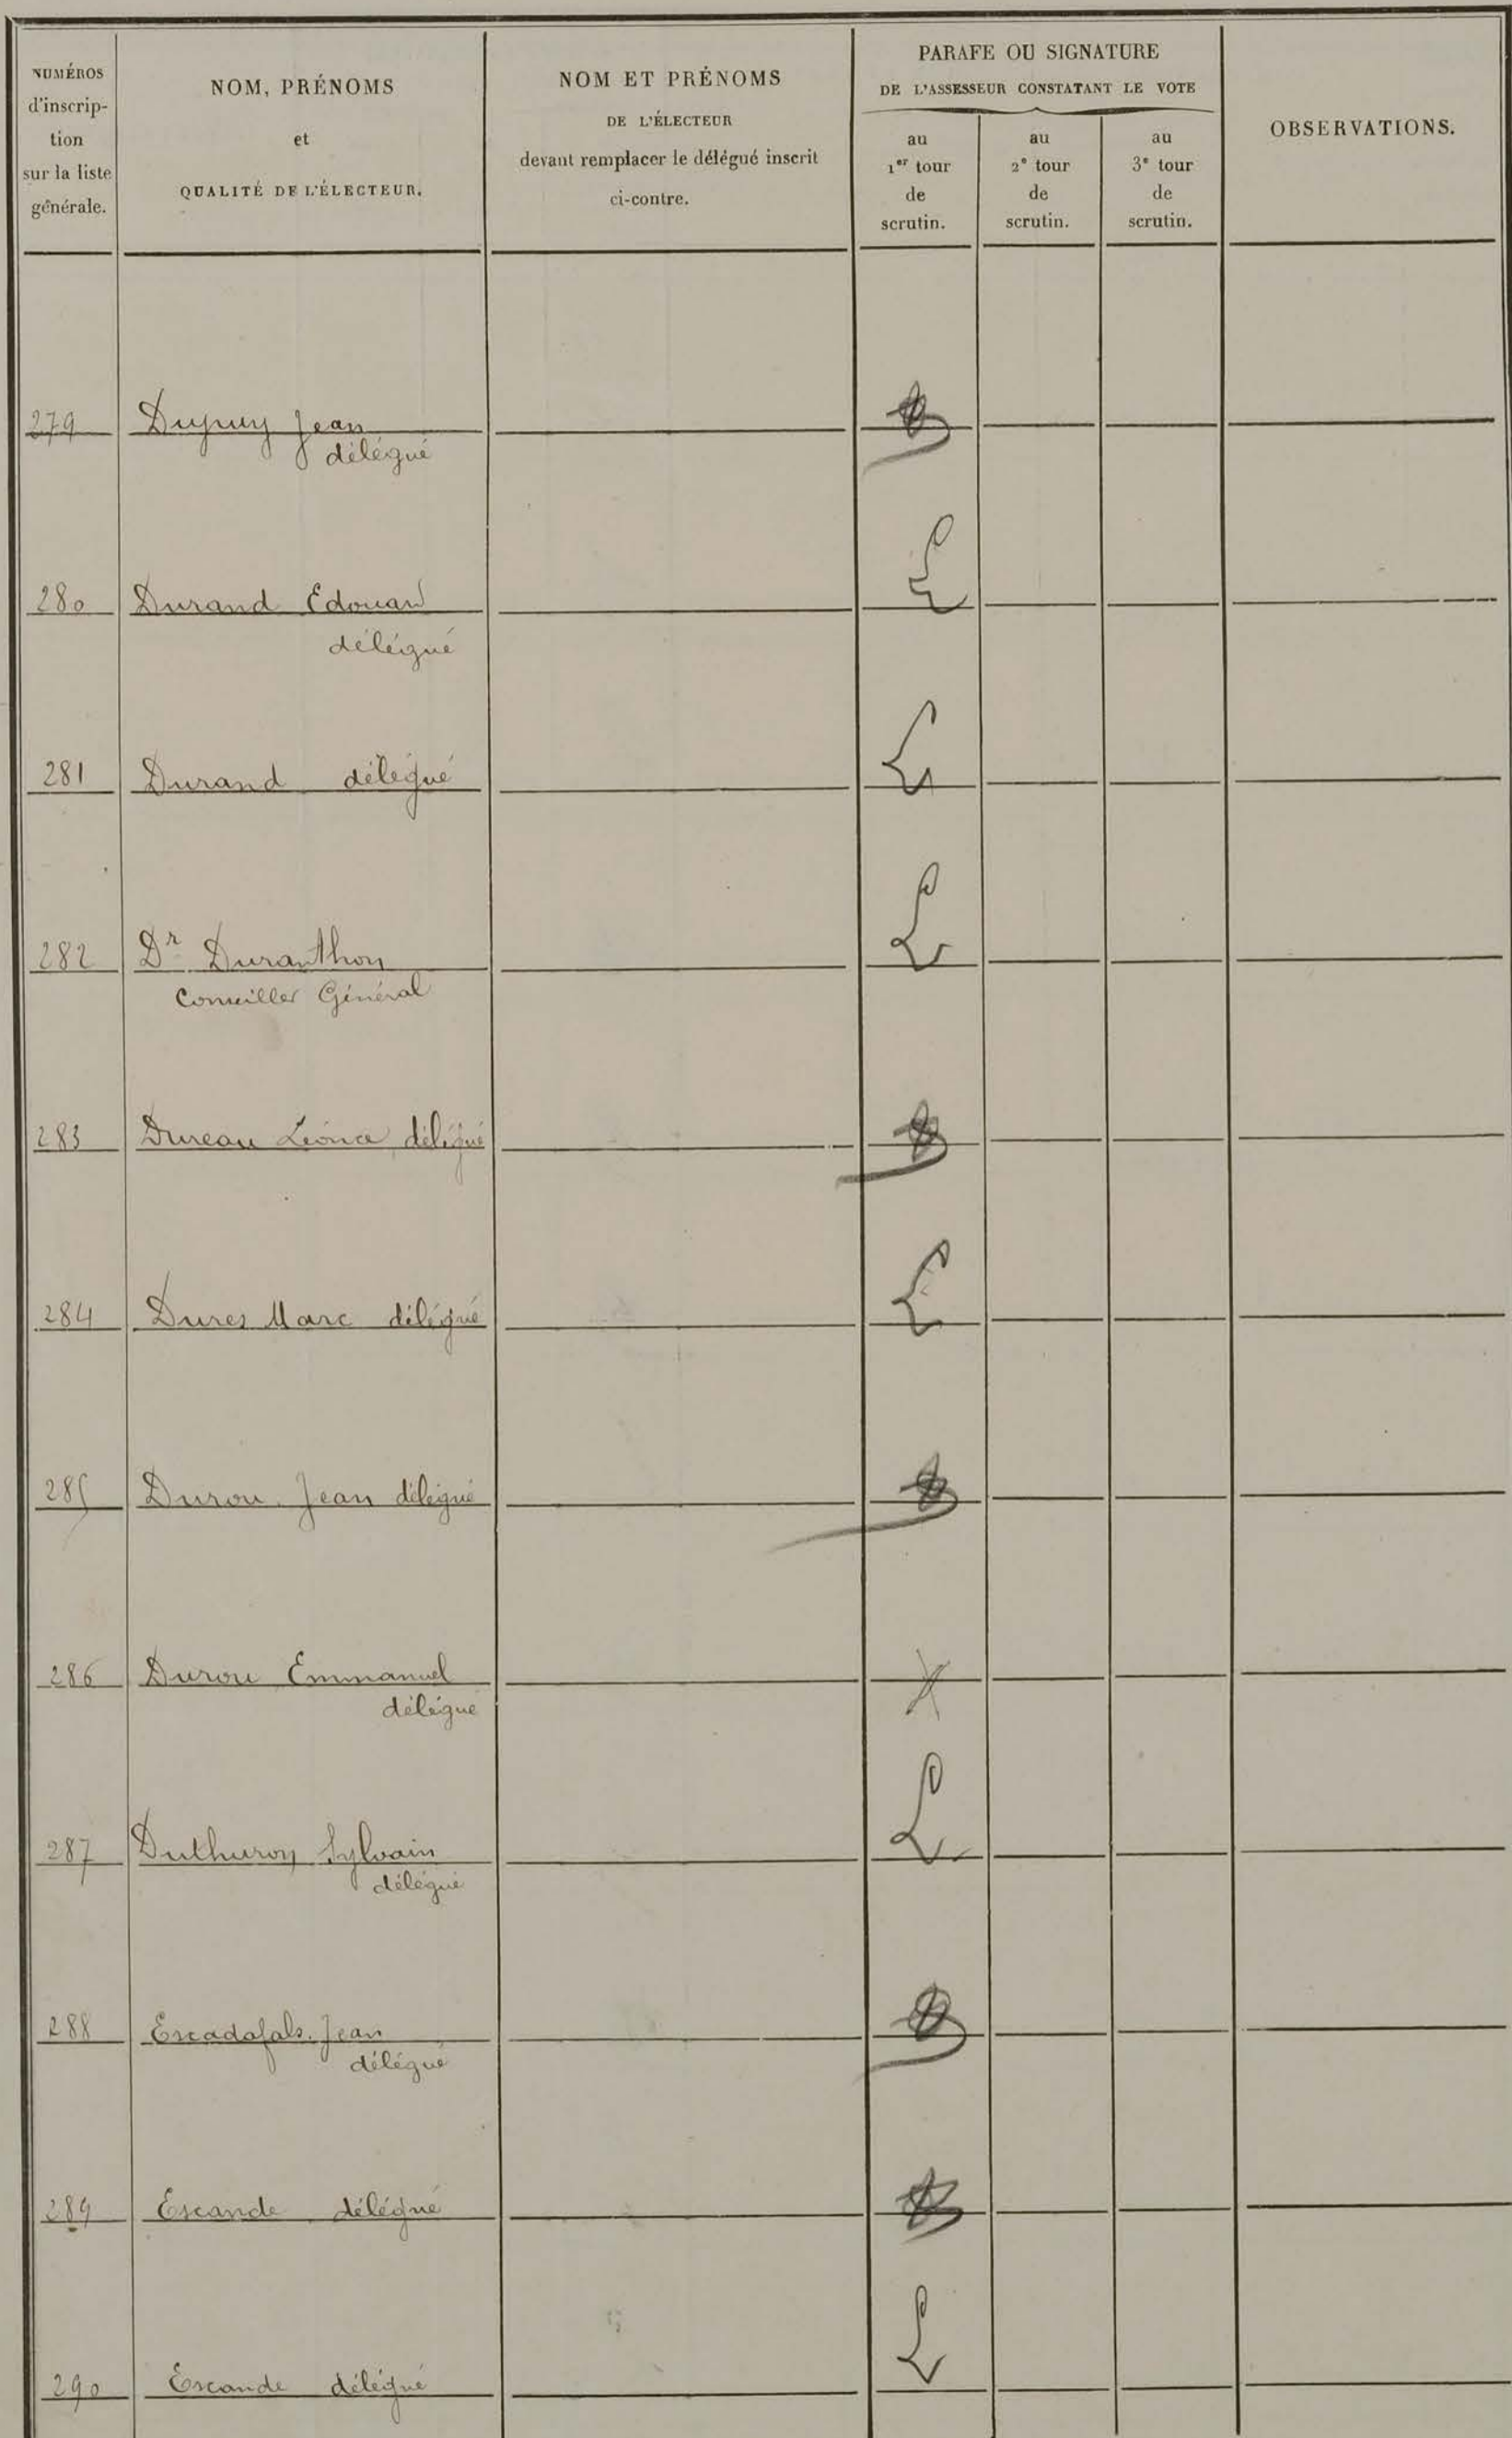 NUMÉROS
d'inscrip-
tion
sur la liste
générale.
NOM, PRÉNOMS
et
QUALITÉ DE L'ÉLECTEUR.
NOM ET PRÉNOMS
DE L'ÉLECTEUR
devant remplacer le délégué inscrit
ci-contre.
PARAFE OU SIGNATURE
DE L'ASSESSEUR CONSTATANT LE VOTE
au
1er tour
de
scrutin.
au
2e tour
de
scrutin.
au
3e tour
de
scrutin.
OBSERVATIONS.
279 Dupuy Jean
délégué
280 Durand Edouard
délégué
281 Durand délégué
282 Dr Duranthon
Conseiller Général
283 Dureau Léonce délégué
284 Dures Marc délégué
285 Durou Jean délégué
286 Durou Emmanuel
délégué
287 Duthuron Sylvain
délégué
288 Escadafals Jean
délégué
289 Escande délégué
290 Escande délégué